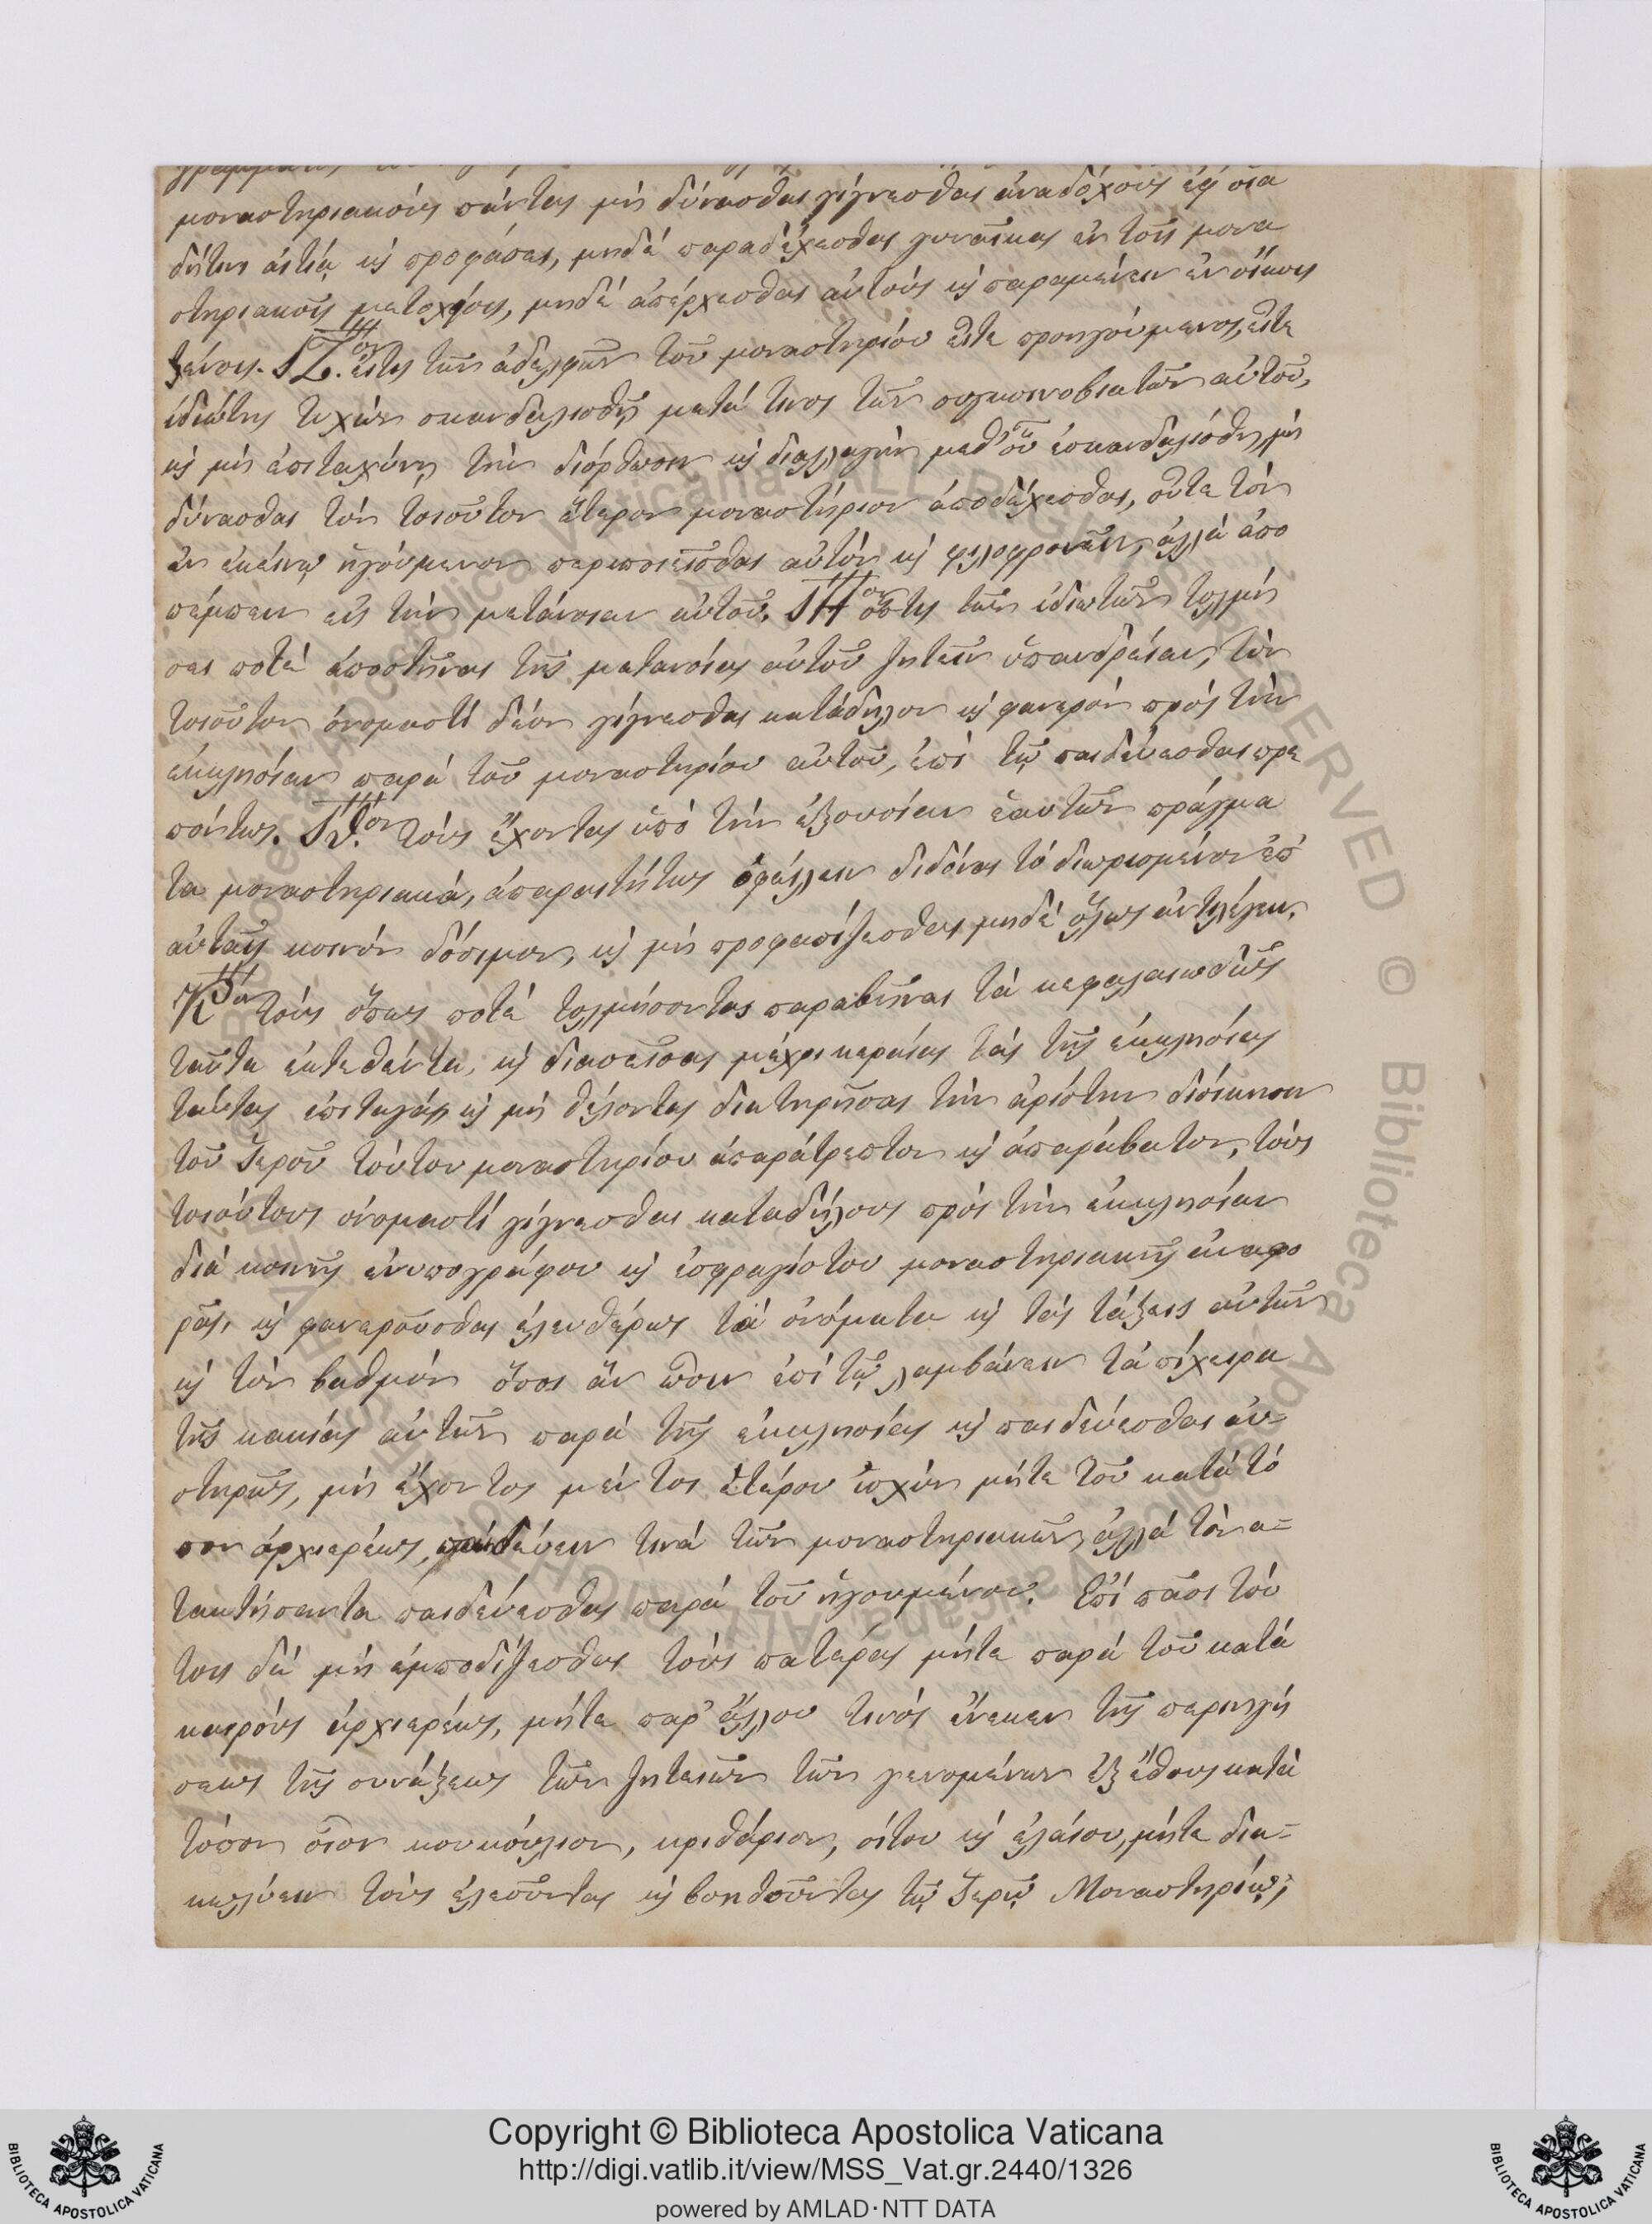 μοναστηριακούς πάντας μή δύνασθαι γίγνεσθαι ἀναδόχους ἐφ' οἵα
δήτινι αἰτίᾳ καὶ προφάσει, μηδέ παραδέχεσθαι γυναῖκας ἐν τοῖς μονα
στηριακοῖς μετοχίοις, μηδέ ἀπέρχεσθαι αὐτούς καὶ παραμένειν ἐν οἴκοις
ξένοις. ΙΖ.ον εἴτις τῶν ἀδελφῶν τοῦ μοναστηρίου εἴτε προηγούμενος, εἴτε
ἰδιώτης τυχών σκανδαλισθῇ μετά τινος τῶν συγκοινοβιατῶν αὐτοῦ,
καὶ μή ἐπιταχύνῃ τήν διόρθωσιν καὶ διαλλαγήν μεθ' οὗ ἐσκανδαλίσθη, μή
δύνασθαι τόν τοιοῦτον ἕτερον μοναστήριον ἀποδέχεσθαι, οὔτε τόν
ἐν ἐκείνῳ ἡγούμενον περιποιεῖσθαι αὐτόν καὶ φιλοφρονεῖν, ἀλλά ἀπο
πέμπειν εἰς τήν μετάνοιαν αὐτοῦ. ΙΗον ὅστις τῶν ἰδιωτῶν τολμή
σει ποτέ ἀποστῆναι τῆς μετανοίας αὐτοῦ ζητεῖν ὑπανδρείαν, τόν
τοιοῦτον ὀνομαστί δέον γίγνεσθαι κατάδηλον καὶ φανερόν πρός τήν
ἐκκλησίαν παρά τοῦ μοναστηρίου αὐτοῦ, ἐπί τῷ παιδεύεσθαι πρε
πόντως. ΙΘ.ον τούς ἔχοντας ὑπό τήν ἐξουσίαν ἑαυτῶν πράγμα
τα μοναστηριακά, ἀπαραιτήτως ὀφείλειν διδόναι τό διωρισμένον ἐπ'
αὐταῖς κοινόν δόσιμον, καὶ μή προφασίζεσθαι μηδέ ὅλως ἀντιλέγειν.
Κόν τούς ὅπως ποτέ τολμήσοντας παραβῆναι τά κεφαλαιωδῶς
ταῦτα ἐκτεθέντα, καὶ διασεῖσαι μέχρι κεραίας τάς τῆς ἐκκλησίας
ταύτας ἐπιταγάς καὶ μή θέλοντας διατηρῆσαι τήν ἀρίστην διοίκησιν
τοῦ Ἱεροῦ τούτου μοναστηρίου ἀπαράτρεπτον καὶ ἀπαράβατον, τούς
τοιούτους ὀνομαστί γίγνεσθαι καταδήλους πρός τήν ἐκκλησίαν
διά κοινῆς ἐνυπογράφου καὶ ἐσφραγίστου μοναστηριακῆς ἀναφο
ρᾶς, καὶ φανεροῦσθαι ἐλευθέρως τά ὀνόματα καὶ τάς τάξεις αὐτῶν
καὶ τόν βαθμόν ὅσοι ἄν ὦσιν ἐπί τῷ λαμβάνειν τά πίχειρα
τῆς κακίας αὐτῶν παρά τῆς ἐκκλησίας καὶ παιδεύεσθαι αὐ=
στηρῶς, μή ἔχοντος μέν τοι ἑτέρου ἰσχύν μήτε τοῦ κατά τό
πον ἀρχιερέως, παιδεύειν τινά τῶν μοναστηριακῶν, ἀλλά τόν α=
τακτήσαντα παιδεύεσθαι παρά τοῦ ἡγουμένου. Ἐπί πᾶσι τού
τοις δέ μή ἐμποδίζεσθαι τούς πατέρας μήτε παρά τοῦ κατά
καιρούς ἀρχιερέως, μήτε παρ' ἄλλου τινός ἕνεκεν τῆς περιηγή
σεως τῆς συνάξεως τῶν ζητειῶν τῶν γενομένων ἐξ ἔθους κατά
τόπον οἷον κουκούλιον, κριθάριον, σίτου καὶ ἐλαίου, μήτε δια=
κωλύειν τούς ἐλεοῦντας καὶ βοηθοῦντας τῷ Ἱερῷ Μοναστηρίῳ,
Copyright © Biblioteca Apostolica Vaticana
http://digi.vatlib.it/view/MSS_Vat.gr.2440/1326
powered by AMLAD·NTT DATA
BIBLIOTECA APOSTOLICA VATICANA
BIBLIOTECA APOSTOLICA VATICANA